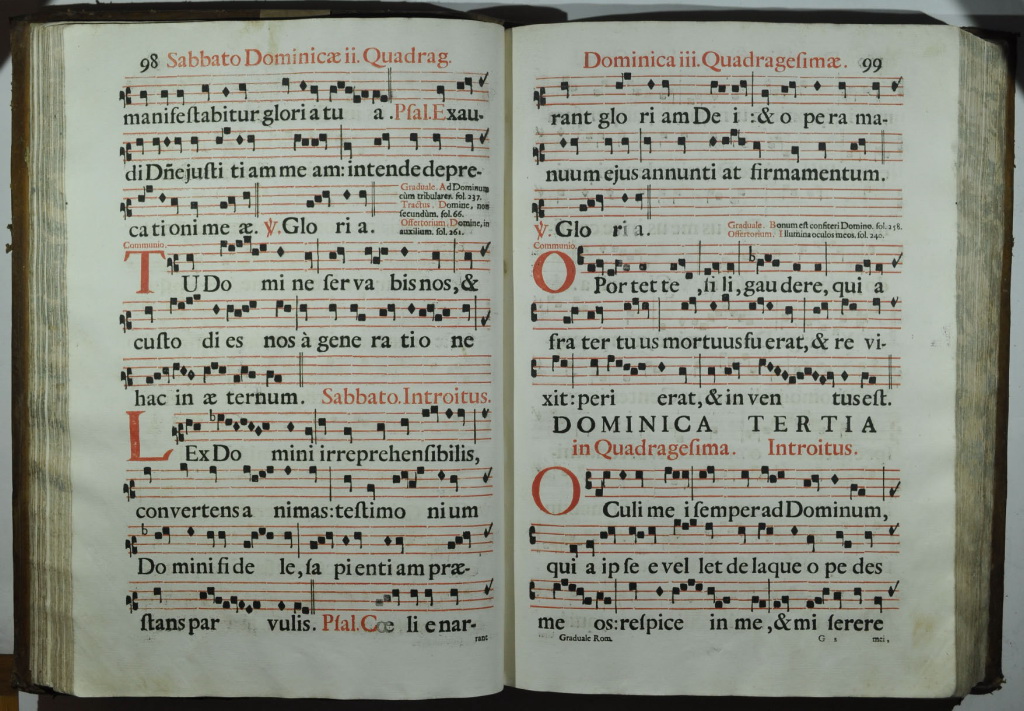 98 Sabbato Dominicæ ii. Quadrag.
manifeſtabitur gloria tu a . Pſal. Exau-
di Dñe juſti ti am me am: intende depre-
Graduale. Ad Dominum
cùm tribularer. fol. 237.
Tractus. Domine, non
secundùm. fol. 66.
Offertorium. Domine, in
auxilium. fol. 261.
ca ti oni me æ. ℣. Glo ri a.
Communio.
TU Do mi ne ſer va bis nos, &
cuſto di es nos à gene ra ti o ne
hac in æ ternum. Sabbato. Introitus.
LEx Do mini irreprehenſibilis,
convertens a nimas: teſtimo nium
Do mini fi de le, ſa pi enti am præ-
ſtans par vulis. Pſal. Cœ li e nar-
rant
Dominica iii. Quadrageſimæ. 99
rant glo ri am De i : & o pe ra ma-
nuum ejus annunti at firmamentum.
℣. Glo ri a.
Graduale. Bonum est confiteri Domino. fol. 238.
Offertorium. Illumina oculos meos. fol. 240.
Communio.
OPor tet te , fi li, gau dere, qui a
fra ter tu us mortuus fu erat, & re vi-
xit: peri erat, & in ven tus eſt.
DOMINICA TERTIA
in Quadrageſima. Introitus.
OCuli me i ſemper ad Dominum,
qui a ip ſe e vel let de laque o pe des
me os: reſpice in me , & mi ſerere
Graduale Rom. G 2 mei,